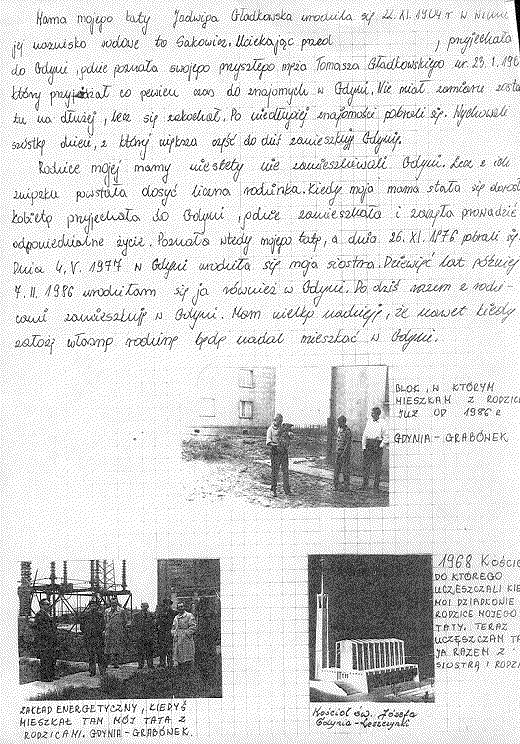 Mama mojego taty Jadwiga Gładkowska urodziła się 22.XI.1904 r w Wilnie
jej nazwisko rodowe to Sakowicz. Uciekając przed , przyjechała
do Gdyni, gdzie poznała swojego przyszłego męża Tomasza Gładkowskiego ur. 29.1.190
który przyjechał co pewien czas do znajomych w Gdyni. Nie miał zamiaru zosta
tu na dłużej, lecz się zakochał. Po niedługiej znajomości pobrali się. Wychowali
szóstkę dzieci, z której większa część do dziś zamieszkuje Gdynię.
Rodzice mojej mamy niestety nie zamieszkiwali Gdyni. Lecz z ich
związku powstała dosyć liczna rodzinka. Kiedy moja mama stała się dorosł
kobietą przyjechała do Gdyni, gdzie zamieszkała i zaczęła prowadzić
odpowiedzialne życie. Poznała wtedy mojego tatę, a dnia 26.XI.1976 pobrali się.
Dnia 4.V.1977 w Gdyni urodziła się moja siostra. Dziewięć lat później
7.II.1986 urodziłam się ja również w Gdyni. Do dziś razem z rodzi-
cami zamieszkuję w Gdyni. Mam wielką nadzieję, że nawet kiedy
założę własną rodzinę będę nadal mieszkać w Gdyni.
BLOK, W KTÓRYM
MIESZKAM Z RODZICA
JUŻ OD 1986 r
GDYNIA - GRABÓWEK
1968 KOŚCIÓ
DO KTÓREGO
UCZĘSZCZALI KIE
MOI DZIADKOWIE
RODZICE MOJEGO
TATY. TERAZ
UCZĘSZCZAM TA
JA RAZEM Z
SIOSTRĄ I RODZI
ZAKŁAD ENERGETYCZNY, KIEDYŚ
MIESZKAŁ TAM MÓJ TATA Z
RODZICAMI. GDYNIA - GRABÓWEK.
Kościół św. Józefa
Gdynia - Leszczynki